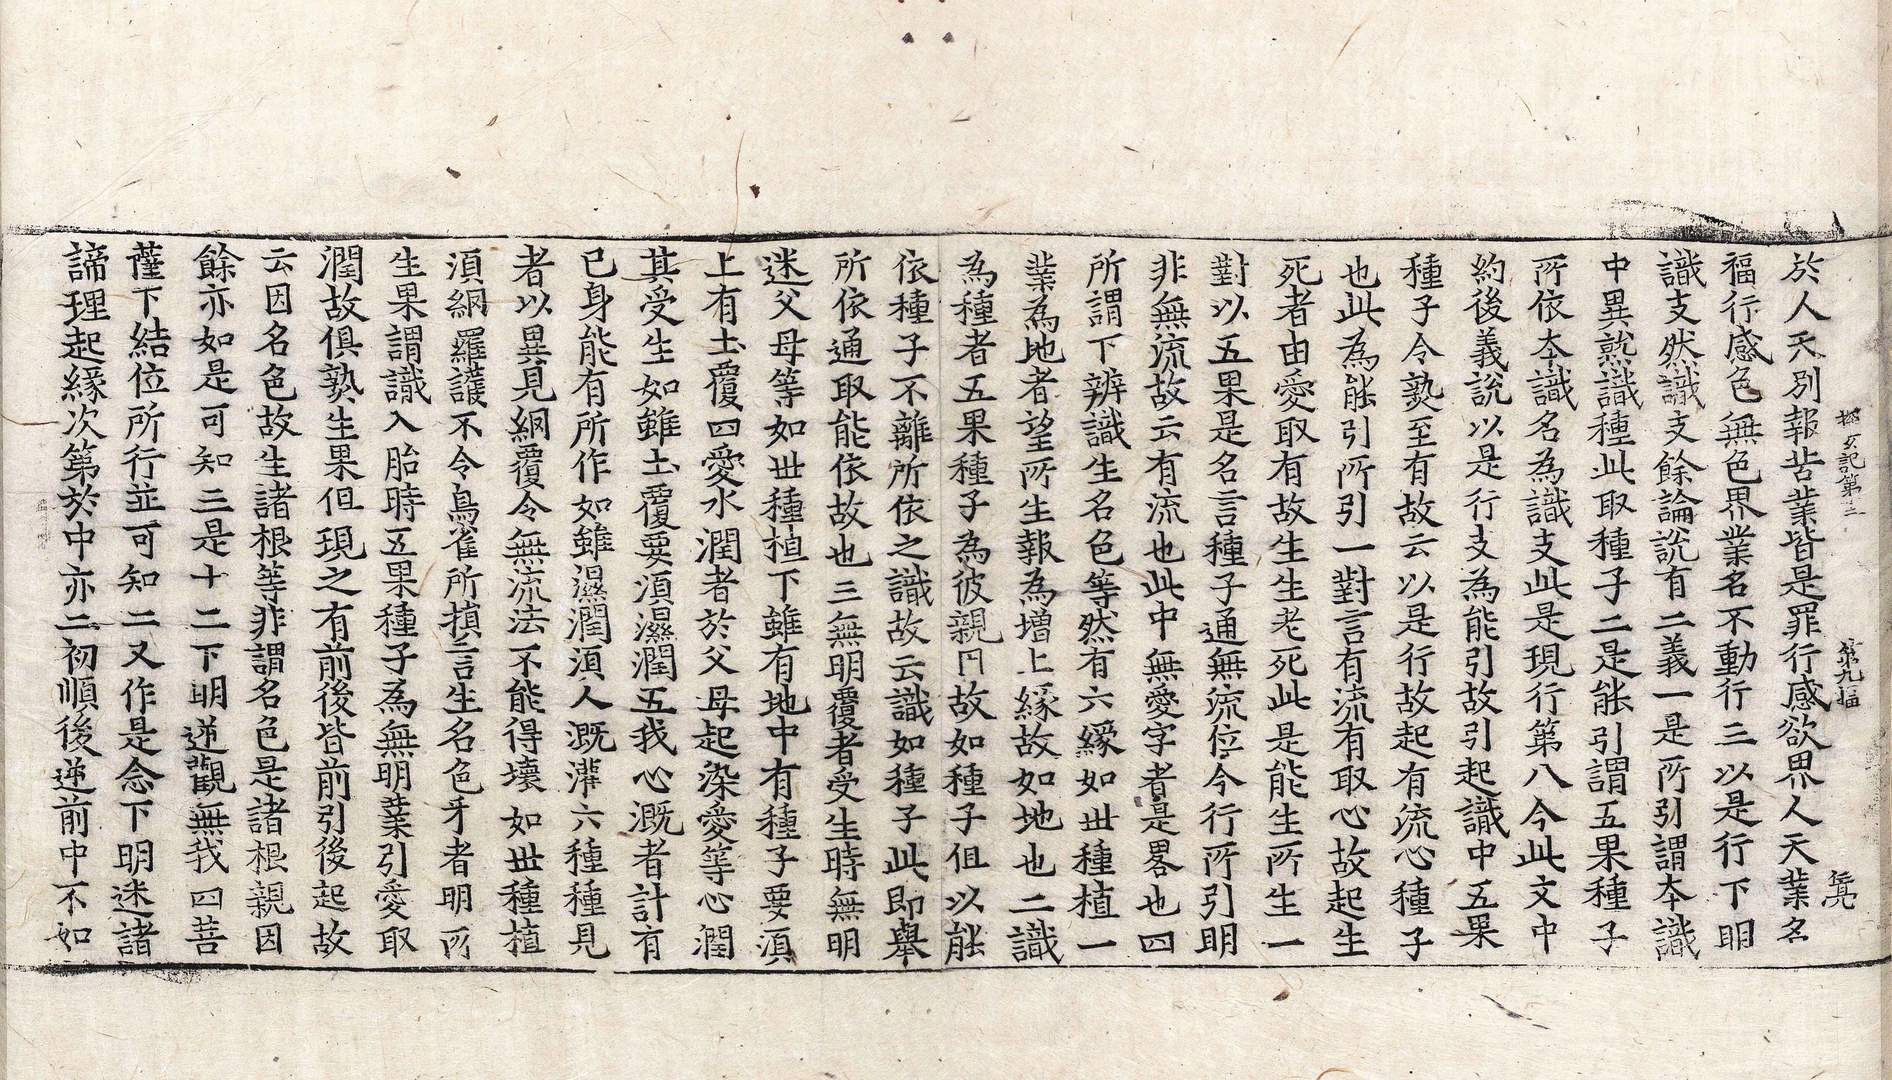 探玄記第三 第九幅 煕
於人天別報苦業皆是罪行感欲界人天業名
福行感色無色界業名不動行三以是行下明
識支然識支餘論說有二義一是所引謂本識
中異熟識種此取種子二是能引謂五果種子
所依本識名為識支此是現行第八今此文中
約後義說以是行支為能引故引起識中五果
種子令熟至有故云以是行故起有流心種子
也此為能引所引一對言有流有取心故起生
死者由愛取有故生生老死此是能生所生一
對以五果是名言種子通無流位今行所引明
非無流故云有流也此中無愛字者是畧也四
所謂下辨識生名色等然有六緣如世種植一
業為地者望所生報為增上緣故如地也二識
為種者五果種子為彼親因故如種子但以能
依種子不離所依之識故云識如種子此即舉
所依通取能依故也三無明覆者受生時無明
迷父母等如世種植下雖有地中有種子要須
上有土覆四愛水潤者於父母起染愛等心潤
其受生如雖土覆要須濕潤五我心溉者計有
已身能有所作如雖濕潤須人溉灌六種種見
者以異見網覆令無流法不能得壞如世種植
須網羅護不令鳥雀所損言生名色牙者明所
生果謂識入胎時五果種子為無明業引愛取
潤故俱熟生果但現之有前後皆前引後起故
云因名色故生諸根等非謂名色是諸根親因
餘亦如是可知三是十二下明逆觀無我四菩
薩下結位所行並可知二又作是念下明迷諸
諦理起緣次第於中亦二初順後逆前中不如